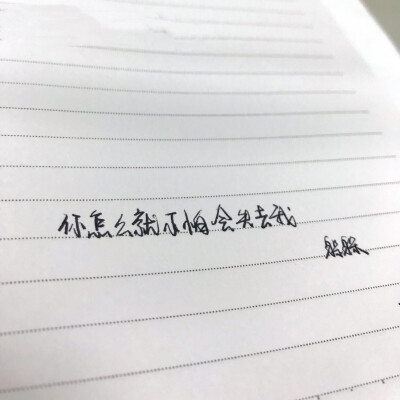 你怎么就不怕会失去我